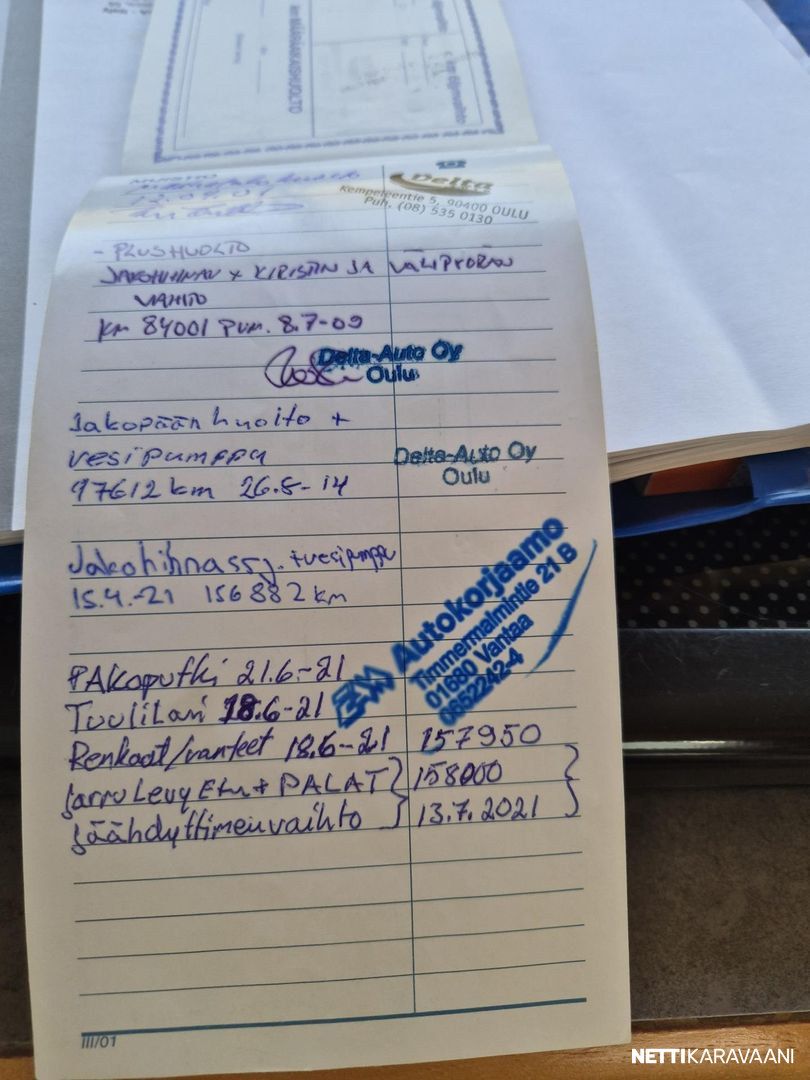 MÄÄRÄAIKAISHUOLTO
MUISTIO
Delta
Kempeleentie 5, 90400 OULU
Puh. (08) 535 0130
- PLUSHUOLTO
JAKOHIHNAN + KIRISTIN JA VÄLIPYÖRÄN
VAIHTO
km 84001 PVM. 8.7-09
Delta-Auto Oy
Oulu
Jakopään huolto +
vesipumppu
97612 km 26.5-14
Delta-Auto Oy
Oulu
Jakohihnassrj. + vesipumppu
15.4.-21 156882 km
Autokorjaamo
Timmermalmintie 21 B
01680 Vantaa
0652242-4
PAKoputki 21.6.-21
TuuliLasi 18.6-21
Renkaat/vanteet 18.6-21 157950
JarruLevy Etu + PALAT 158000
Jäähdyttimenvaihto 13.7.2021
III/01
NETTIKARAVAANI